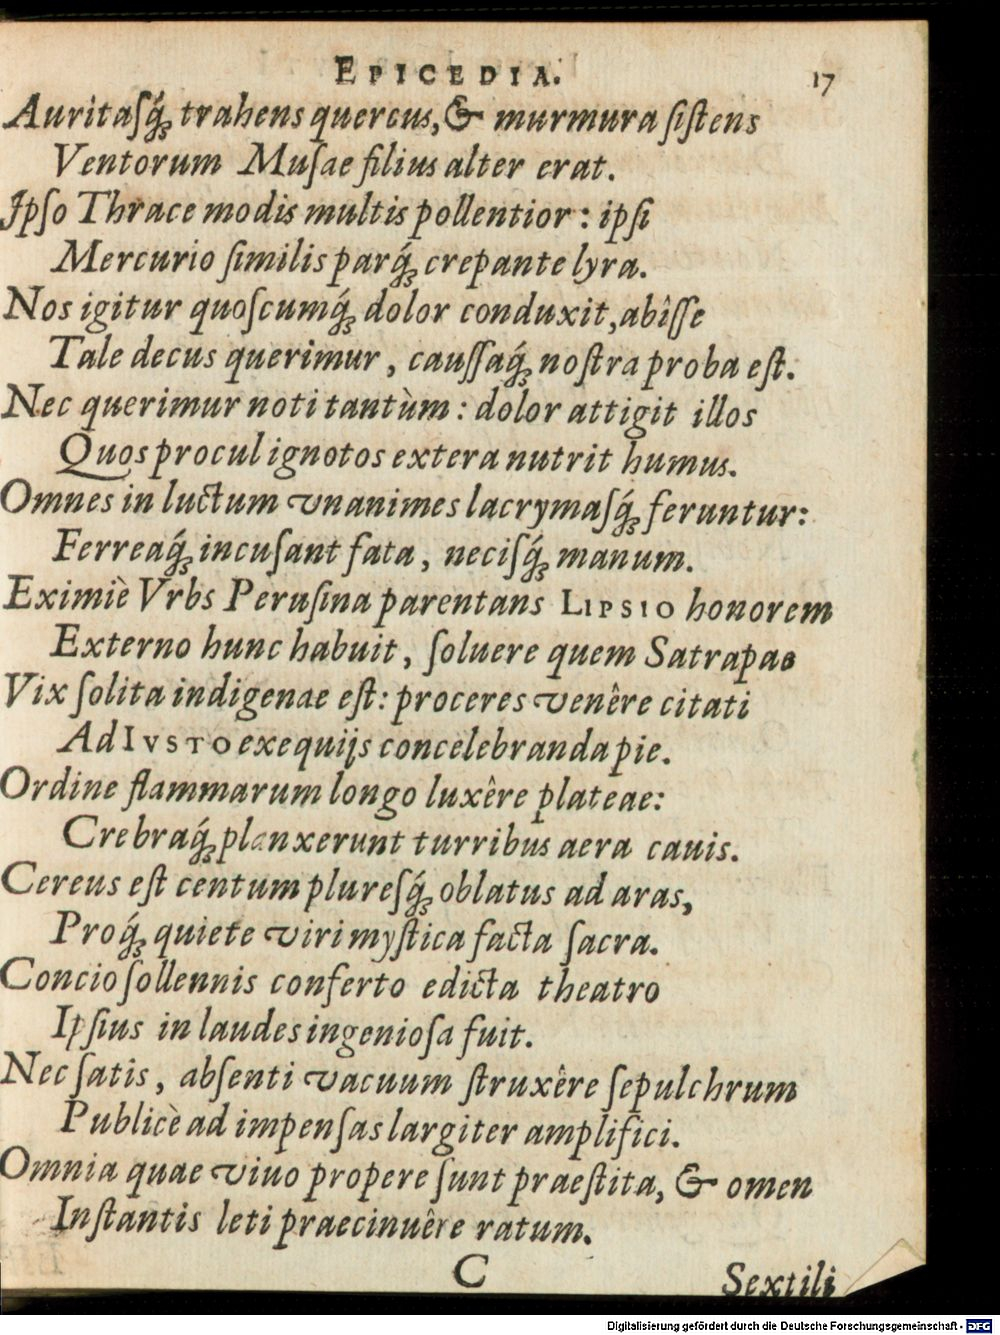 EPICEDIA. 17
Auritasq́ꝫ trahens quercus, & murmura ſiſtens
Ventorum Muſae filius alter erat.
Ipſo Thrace modis multis pollentior : ipſi
Mercurio ſimilis parq́ꝫ crepante lyra.
Nos igitur quoſcumq́ꝫ dolor conduxit, abîſſe
Tale decus querimur, cauſſaq́ꝫ noſtra proba eſt.
Nec querimur noti tantùm : dolor attigit illos
Quos procul ignotos extera nutrit humus.
Omnes in luctum vnanimes lacrymaſq́ꝫ feruntur:
Ferreaq́ꝫ incuſant fata, neciſq́ꝫ manum.
Eximiè Vrbs Peruſina parentans LIPSIO honorem
Externo hunc habuit, ſoluere quem Satrapae
Vix ſolita indigenae eſt: proceres venêre citati
Ad IVSTO exequijs concelebranda pie.
Ordine flammarum longo luxêre plateae:
Crebraq́ꝫ planxerunt turribus aera cauis.
Cereus eſt centum plureſq́ꝫ oblatus ad aras,
Proq́ꝫ quiete viri myſtica facta ſacra.
Concio ſollennis conferto edicta theatro
Ipſius in laudes ingenioſa fuit.
Nec ſatis, abſenti vacuum ſtruxêre ſepulchrum
Publicè ad impenſas largiter amplifici.
Omnia quae viuo propere ſunt praeſtita, & omen
Inſtantis leti praecinuêre ratum.
C Sextili
Digitalisierung gefördert durch die Deutsche Forschungsgemeinschaft - DFG